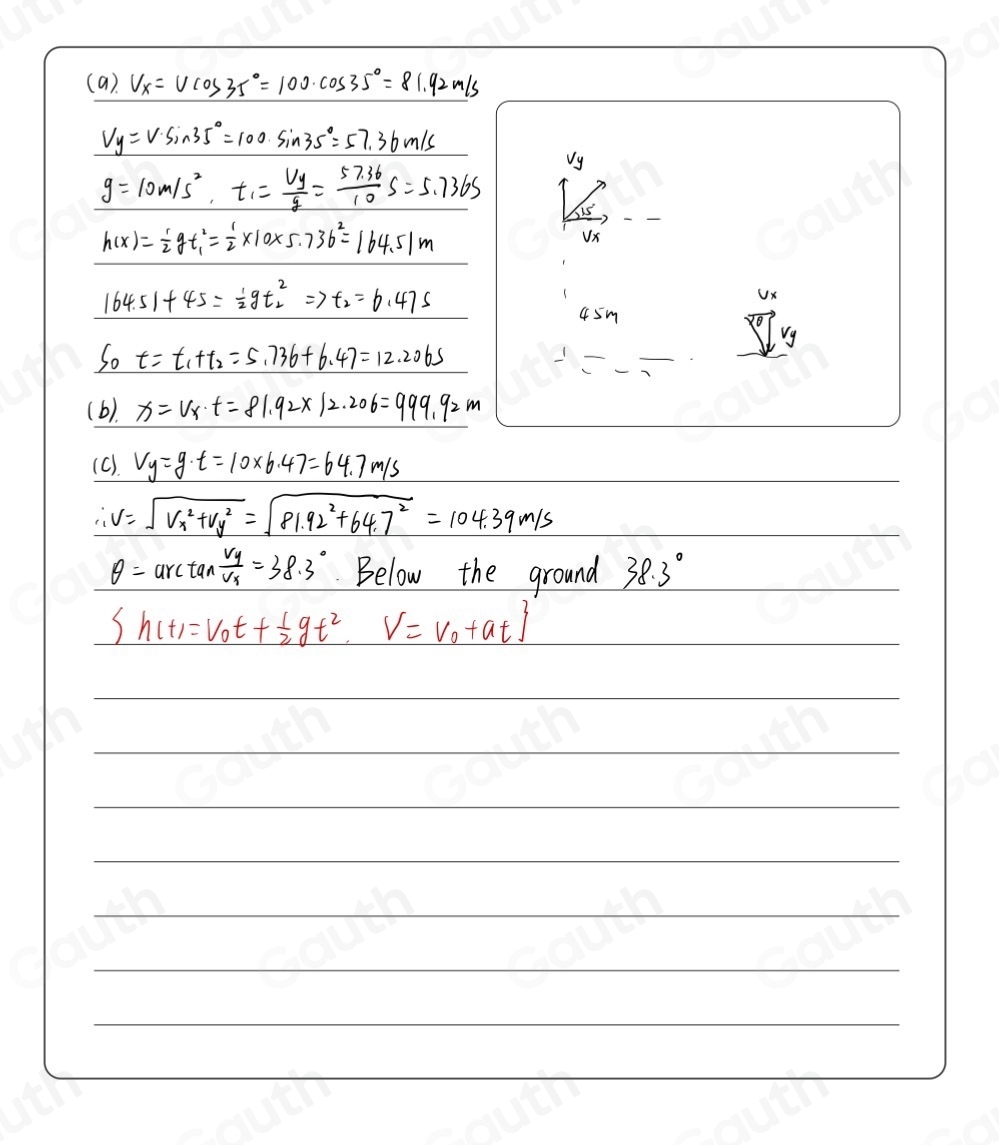 (a). Vx = V cos35° = 100·cos35° = 81.92 m/s
Vy = V·sin35° = 100·sin35° = 57.36 m/s
g = 10m/s², t₁ = Vy/g = 57.36/10 s = 5.736s
h(x) = ½gt₁² = ½×10×5.736² = 164.51m
164.51 + 45 = ½gt₂² => t₂ = 6.47s
So t = t₁+t₂ = 5.736+6.47 = 12.206s
(b). x = Vx·t = 81.92×12.206 = 999.92m
Vy
35°
Vx
45m
Vx
θ
Vy
(c). Vy = g·t = 10×6.47 = 64.7m/s
∴V = √(Vx²+Vy²) = √(81.92²+64.7²) = 104.39m/s
θ = arctan Vy/Vx = 38.3°. Below the ground 38.3°
{h(t) = V₀t + ½gt². V = V₀+at}
Gauth